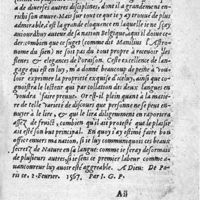 a de diuerses autres disciplines, dont il a grandement en-
richi son œuure. Mais sur tout ce que ie y ay trouué de plus
admirable, c'est la grande eloquence en laquelle ie ne sçay
auiourdhuy auteur de sa nation Belgique, auquel il doiue ce-
der: combien que ce suget (comme dit Manilius l'Astro-
nome du sien) ne fust pas du tout propre à receuoir les
fleurs & elegances de l'oraison. Ceste excellence de langa-
ge qui est en luy, m'a donné beaucoup de peine à vou-
loir exprimer sa propriété exquise d'iceluy, ainsi que deux
langues le lecteur qui par collation des deux langues en
voudra faire preuue. Or est-il plein quant à la matie-
re de telle varieté de discours que personne ne s'en peut en-
nuyer à le lire, & qui le lira diligemment en rapportera
assez de fruict, combien qu'il ait proteste que le plaisir
ait esté son but principal. En quoy i'ay estimé faire bon
office enuers ma nation, si ie luy communiquois ces beaux
secrets de Nature en sa langue comme ie feray desormais
de plusieurs autres, si ie sens ce premier labeur comme a-
uantcoureur luy auoir esté aggreable. A Dieu: De Pa-
ris ce. 2. Feurier. 1567. Par I. G. P.
A ij